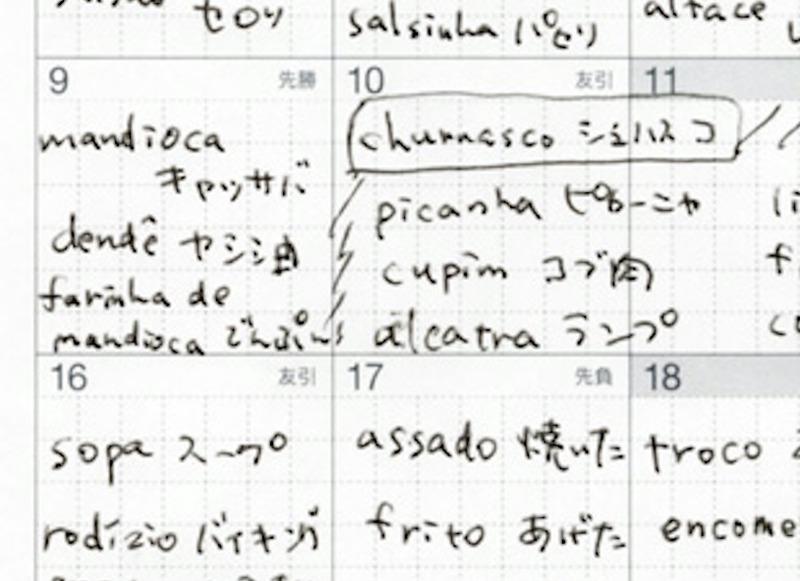 セロリ
salsinha パセリ
alface
9 先勝
mandioca
キャッサバ
dendê ヤシ油
farinha de
mandioca でんぷん
10 友引
churrasco シュハスコ
picanha ピカーニャ
cupim コブ肉
alcatra ランプ
11
16 友引
sopa スープ
rodízio バイキング
17 先負
assado 焼いた
frito あげた
18
troco